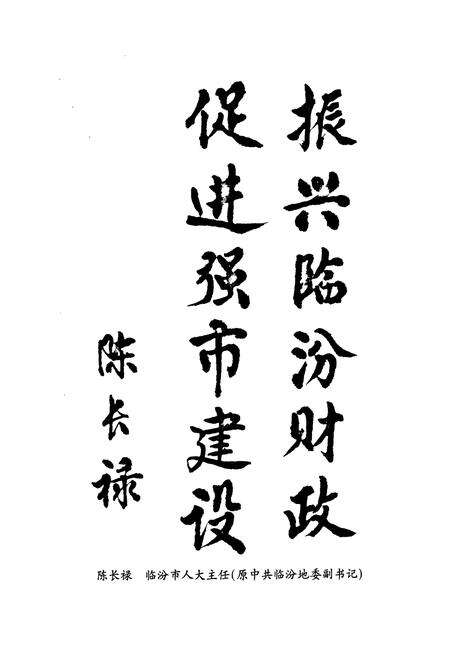 振兴临汾财政
促进强市建设
陈长禄
陈长禄 临汾市人大主任(原中共临汾地委副书记)